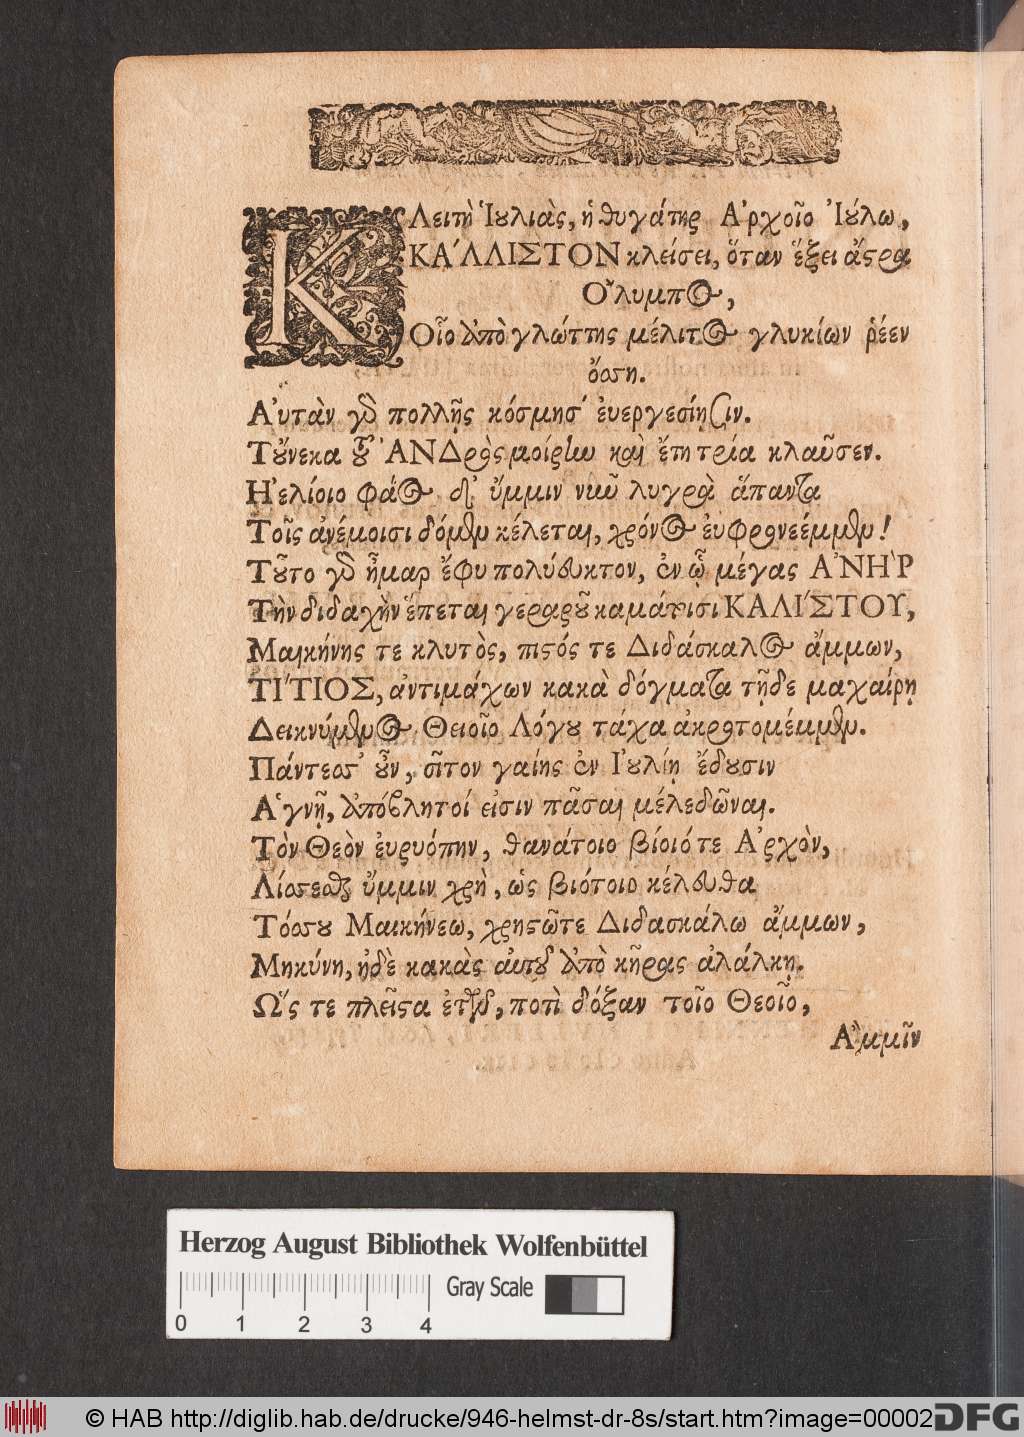 ΚΛειτὴ Ἰουλιὰς, ἡ θυγάτηρ Ἀρχοῖο Ἰούλω,
ΚΑ΄ΛΛΙΣΤΟΝ κλείσει, ὅταν ἕξει ἄστρα
Ὄλυμπος,
Οἷο ἀπὸ γλώττης μέλιτος γλυκίων ῥέεν
ὄσση.
Ἀυτὰν γὸ πολλῇς κόσμησ' ἐυεργεσίῃσιν.
Τοὔνεκα τοῦ ἈΝΔρὸς μοίρην καὶ ἔτη τρία κλαῦσεν.
Ἠελίοιο φάος δι' ὔμμιν νῦν λυγρὰ ἅπαντα
Τοῖς ἀνέμοισι δόμεν κέλεται, χρόνος ἐυφρονεέμεν!
Τοῦτο γὸ ἦμαρ ἔφυ πολύευκτον, ἐν ᾧ μέγας ἈΝῊΡ
Τὴν διδαχὴν ἕπεται γεραροῦ καμάτοισι ΚΑΛΙ΄ΣΤΟΥ,
Μαικήνης τε κλυτὸς, πιστός τε Διδάσκαλος ἄμμων,
ΤΙ΄ΤΙΟΣ, ἀντιμάχων κακὰ δόγματα τῇδε μαχαίρῃ
Δεικνύμενος Θειοῖο Λόγου τάχα ἀκροτομέμεν.
Πάντεσσ' οὖν, σῖτον γαίης ἐν Ἰουλίῃ ἔδουσιν
Ἁγνῇ, ἀπόβλητοί εἰσιν πᾶσαι μέλεδῶναι.
Τὸν Θεὸν ἐυρυόπην, θανάτοιο βίοιό τε Ἀρχὸν,
Λίσσεσθαι ὔμμιν χρὴ, ὡς βιότοιο κέλευθα
Τόσσου Μαικήνεω, χρηστῶτε Διδασκάλω ἄμμων,
Μηκύνῃ, ἠδὲ κακὰς αὐτοῦ ἀπὸ κῆρας ἀλάλκῃ.
Ὥς τε πλεῖστα ἐτῶν, ποτὶ δόξαν τοῖο Θεοῖο,
Ἀμμῖν
Herzog August Bibliothek Wolfenbüttel
Gray Scale
0 1 2 3 4
© HAB http://diglib.hab.de/drucke/946-helmst-dr-8s/start.htm?image=00002
DFG